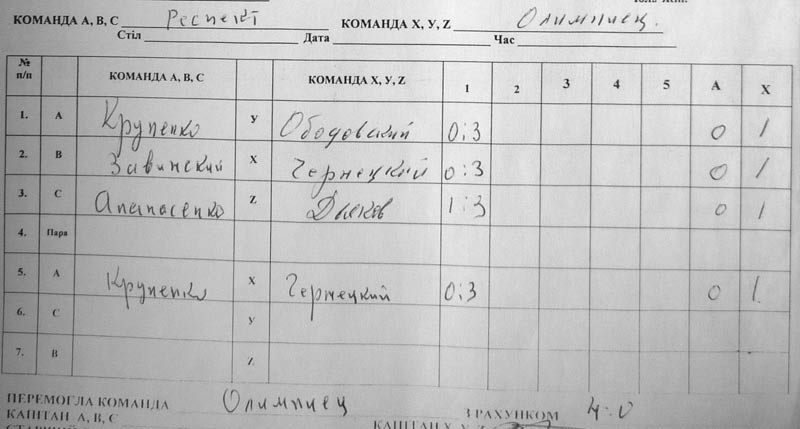 КОМАНДА А, В, С Респект КОМАНДА Х, У, Z Олимпиец.
Стіл Дата Час
№ п/п КОМАНДА А, В, С КОМАНДА Х, У, Z 1 2 3 4 5 А Х
1. А Крупенко У Ободовский 0:3 0 1
2. В Завинский Х Чернецкий 0:3 0 1
3. С Апанасенко Z Дьяков 1:3 0 1
4. Пара
5. А Крупенко Х Чернецкий 0:3 0 1
6. С У
7. В Z
ПЕРЕМОГЛА КОМАНДА Олимпиец З РАХУНКОМ 4:0
КАПІТАН А, В, С КАПІТАН Х, У, Z